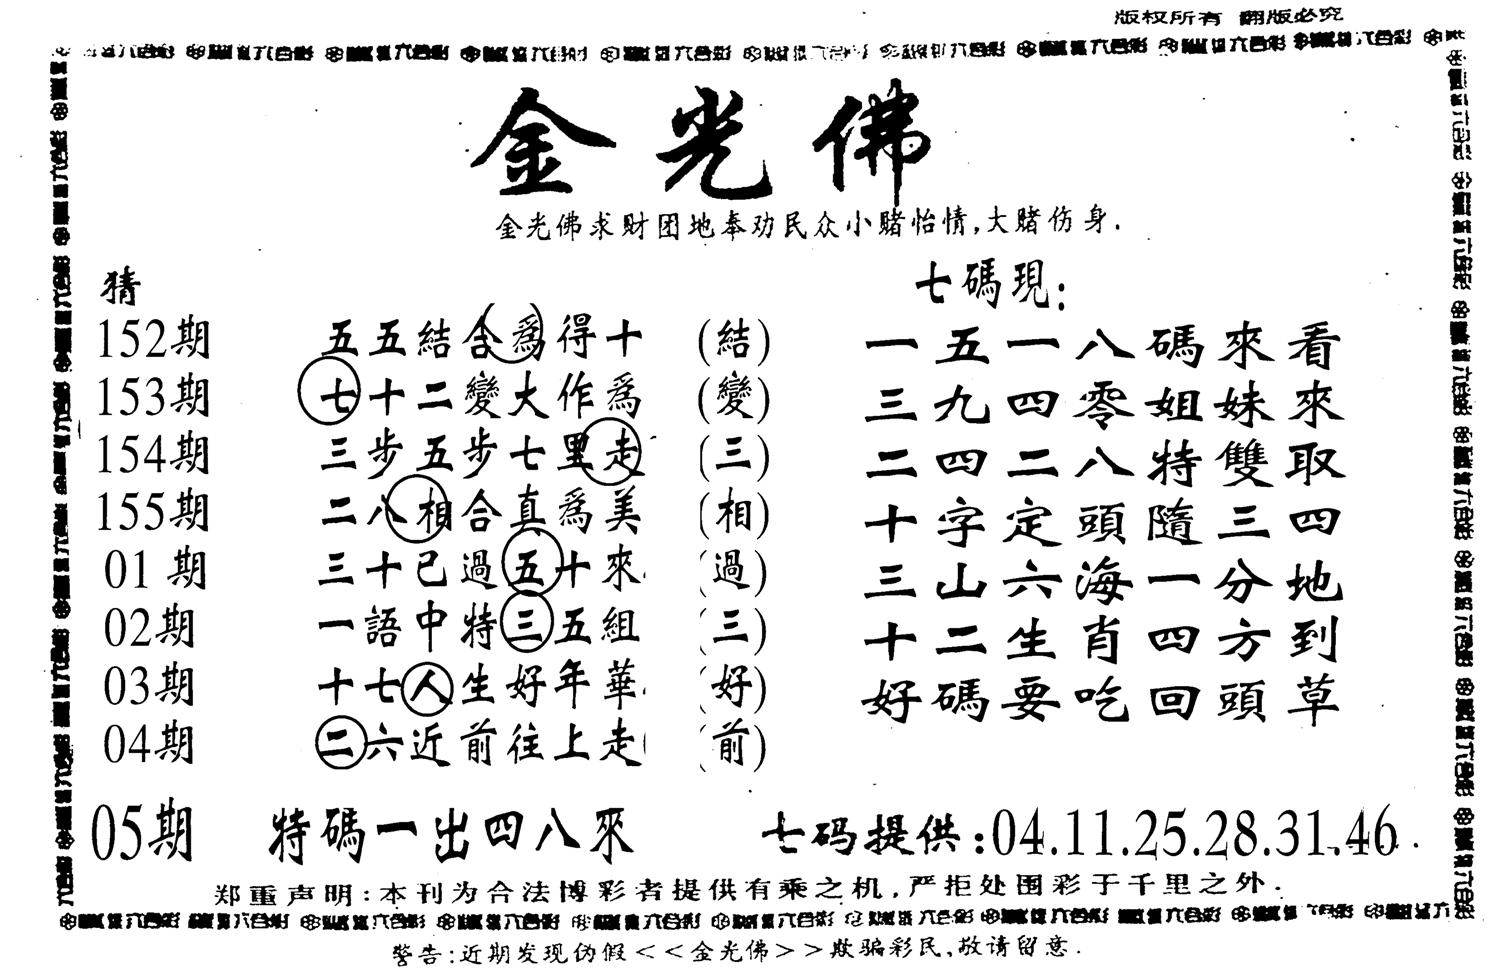 版权所有 翻版必究
金光佛
金光佛求财团地奉劝民众小赌怡情,大赌伤身.
猜
152期 五五結合爲得十 (結)
153期 七十二變大作爲 (變)
154期 三步五步七里走 (三)
155期 二八相合真爲美 (相)
01期 三十已過五十來 (過)
02期 一語中特三五組 (三)
03期 十七人生好年華 (好)
04期 二六近前往上走 (前)
05期 特碼一出四八來
七碼現:
一五一八碼來看
三九四零姐妹來
二四二八特雙取
十字定頭隨三四
三山六海一分地
十二生肖四方到
好碼要吃回頭草
七码提供:04.11.25.28.31.46.
郑重声明:本刊为合法博彩者提供有乘之机,严拒处围彩于千里之外.
警告:近期发现伪假<<金光佛>>欺骗彩民,敬请留意.